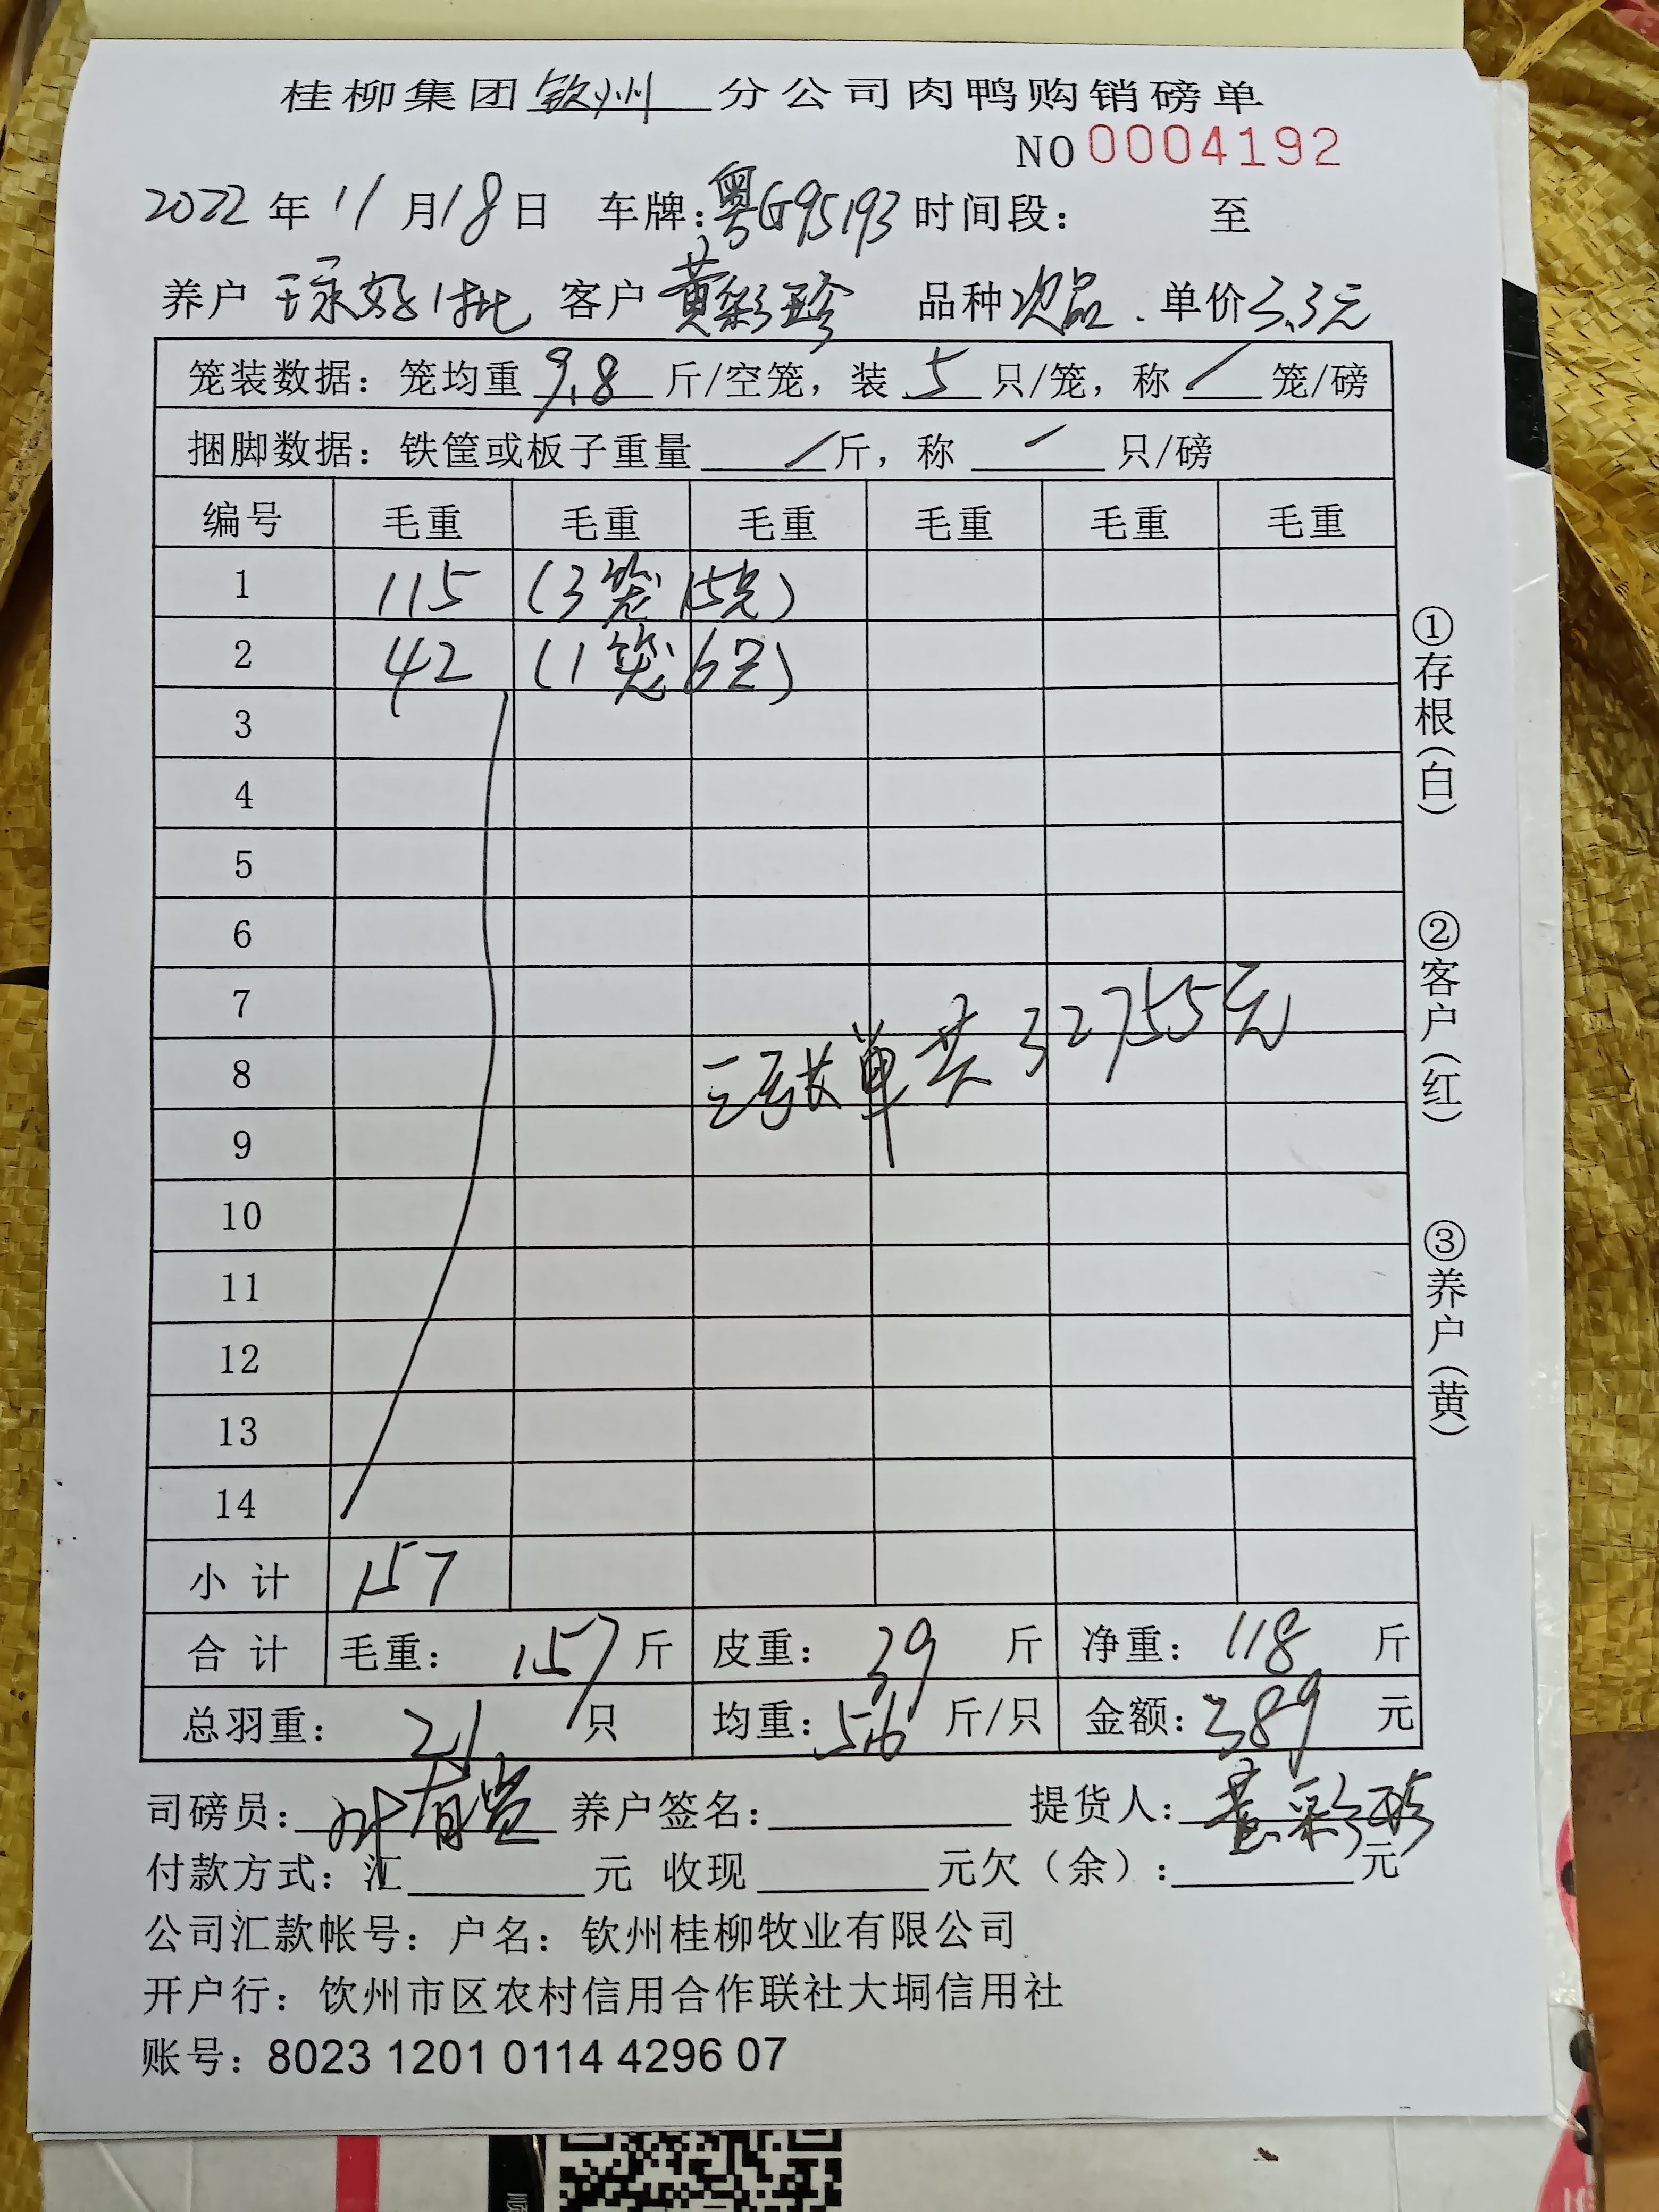 桂柳集团钦州分公司肉鸭购销磅单
NO 0004192
2022年11月18日 车牌:粤G95193 时间段: 至
养户 客户 黄彩珍 品种 次品. 单价3.3元
笼装数据: 笼均重 9.8 斤/空笼, 装 5 只/笼, 称 / 笼/磅
捆脚数据: 铁筐或板子重量 / 斤, 称 / 只/磅
编号 毛重 毛重 毛重 毛重 毛重 毛重
1 115 (3笼 15只)
2 42 (1笼 6只)
3
4
5
6
7
8 三张单共32755元
9
10
11
12
13
14
小计 157
合计 毛重: 157 斤 皮重: 39 斤 净重: 118 斤
总羽重: 21 只 均重: 5.6 斤/只 金额: 389 元
司磅员: 养户签名: 提货人: 黄彩珍
付款方式: 汇 元 收现 元欠(余): 元
公司汇款帐号: 户名: 钦州桂柳牧业有限公司
开户行: 钦州市区农村信用合作联社大垌信用社
账号: 8023 1201 0114 4296 07
①存根(白)
②客户(红)
③养户(黄)